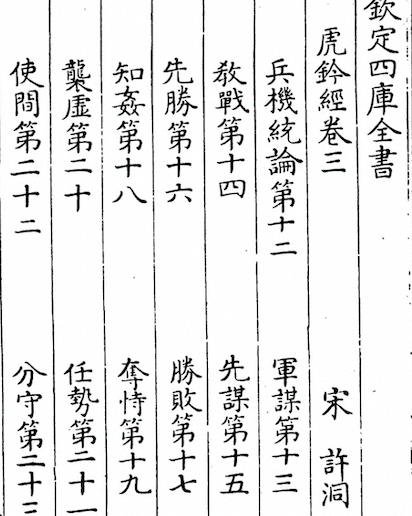 欽定四庫全書
虎鈐經卷三 宋 許洞
兵機統論第十二 軍謀第十三
教戰第十四 先謀第十五
先勝第十六 勝敗第十七
知姦第十八 奪恃第十九
襲虛第二十 任勢第二十一
使間第二十二 分守第二十三